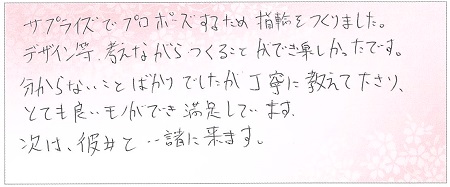 サプライズでプロポーズするため指輪をつくりました。
デザイン等、考えながらつくることができ楽しかったです。
分からないことばかりでしたが丁寧に教えて下さり、
とても良いモノができ満足しています。
次は、彼女と一諸に来ます。